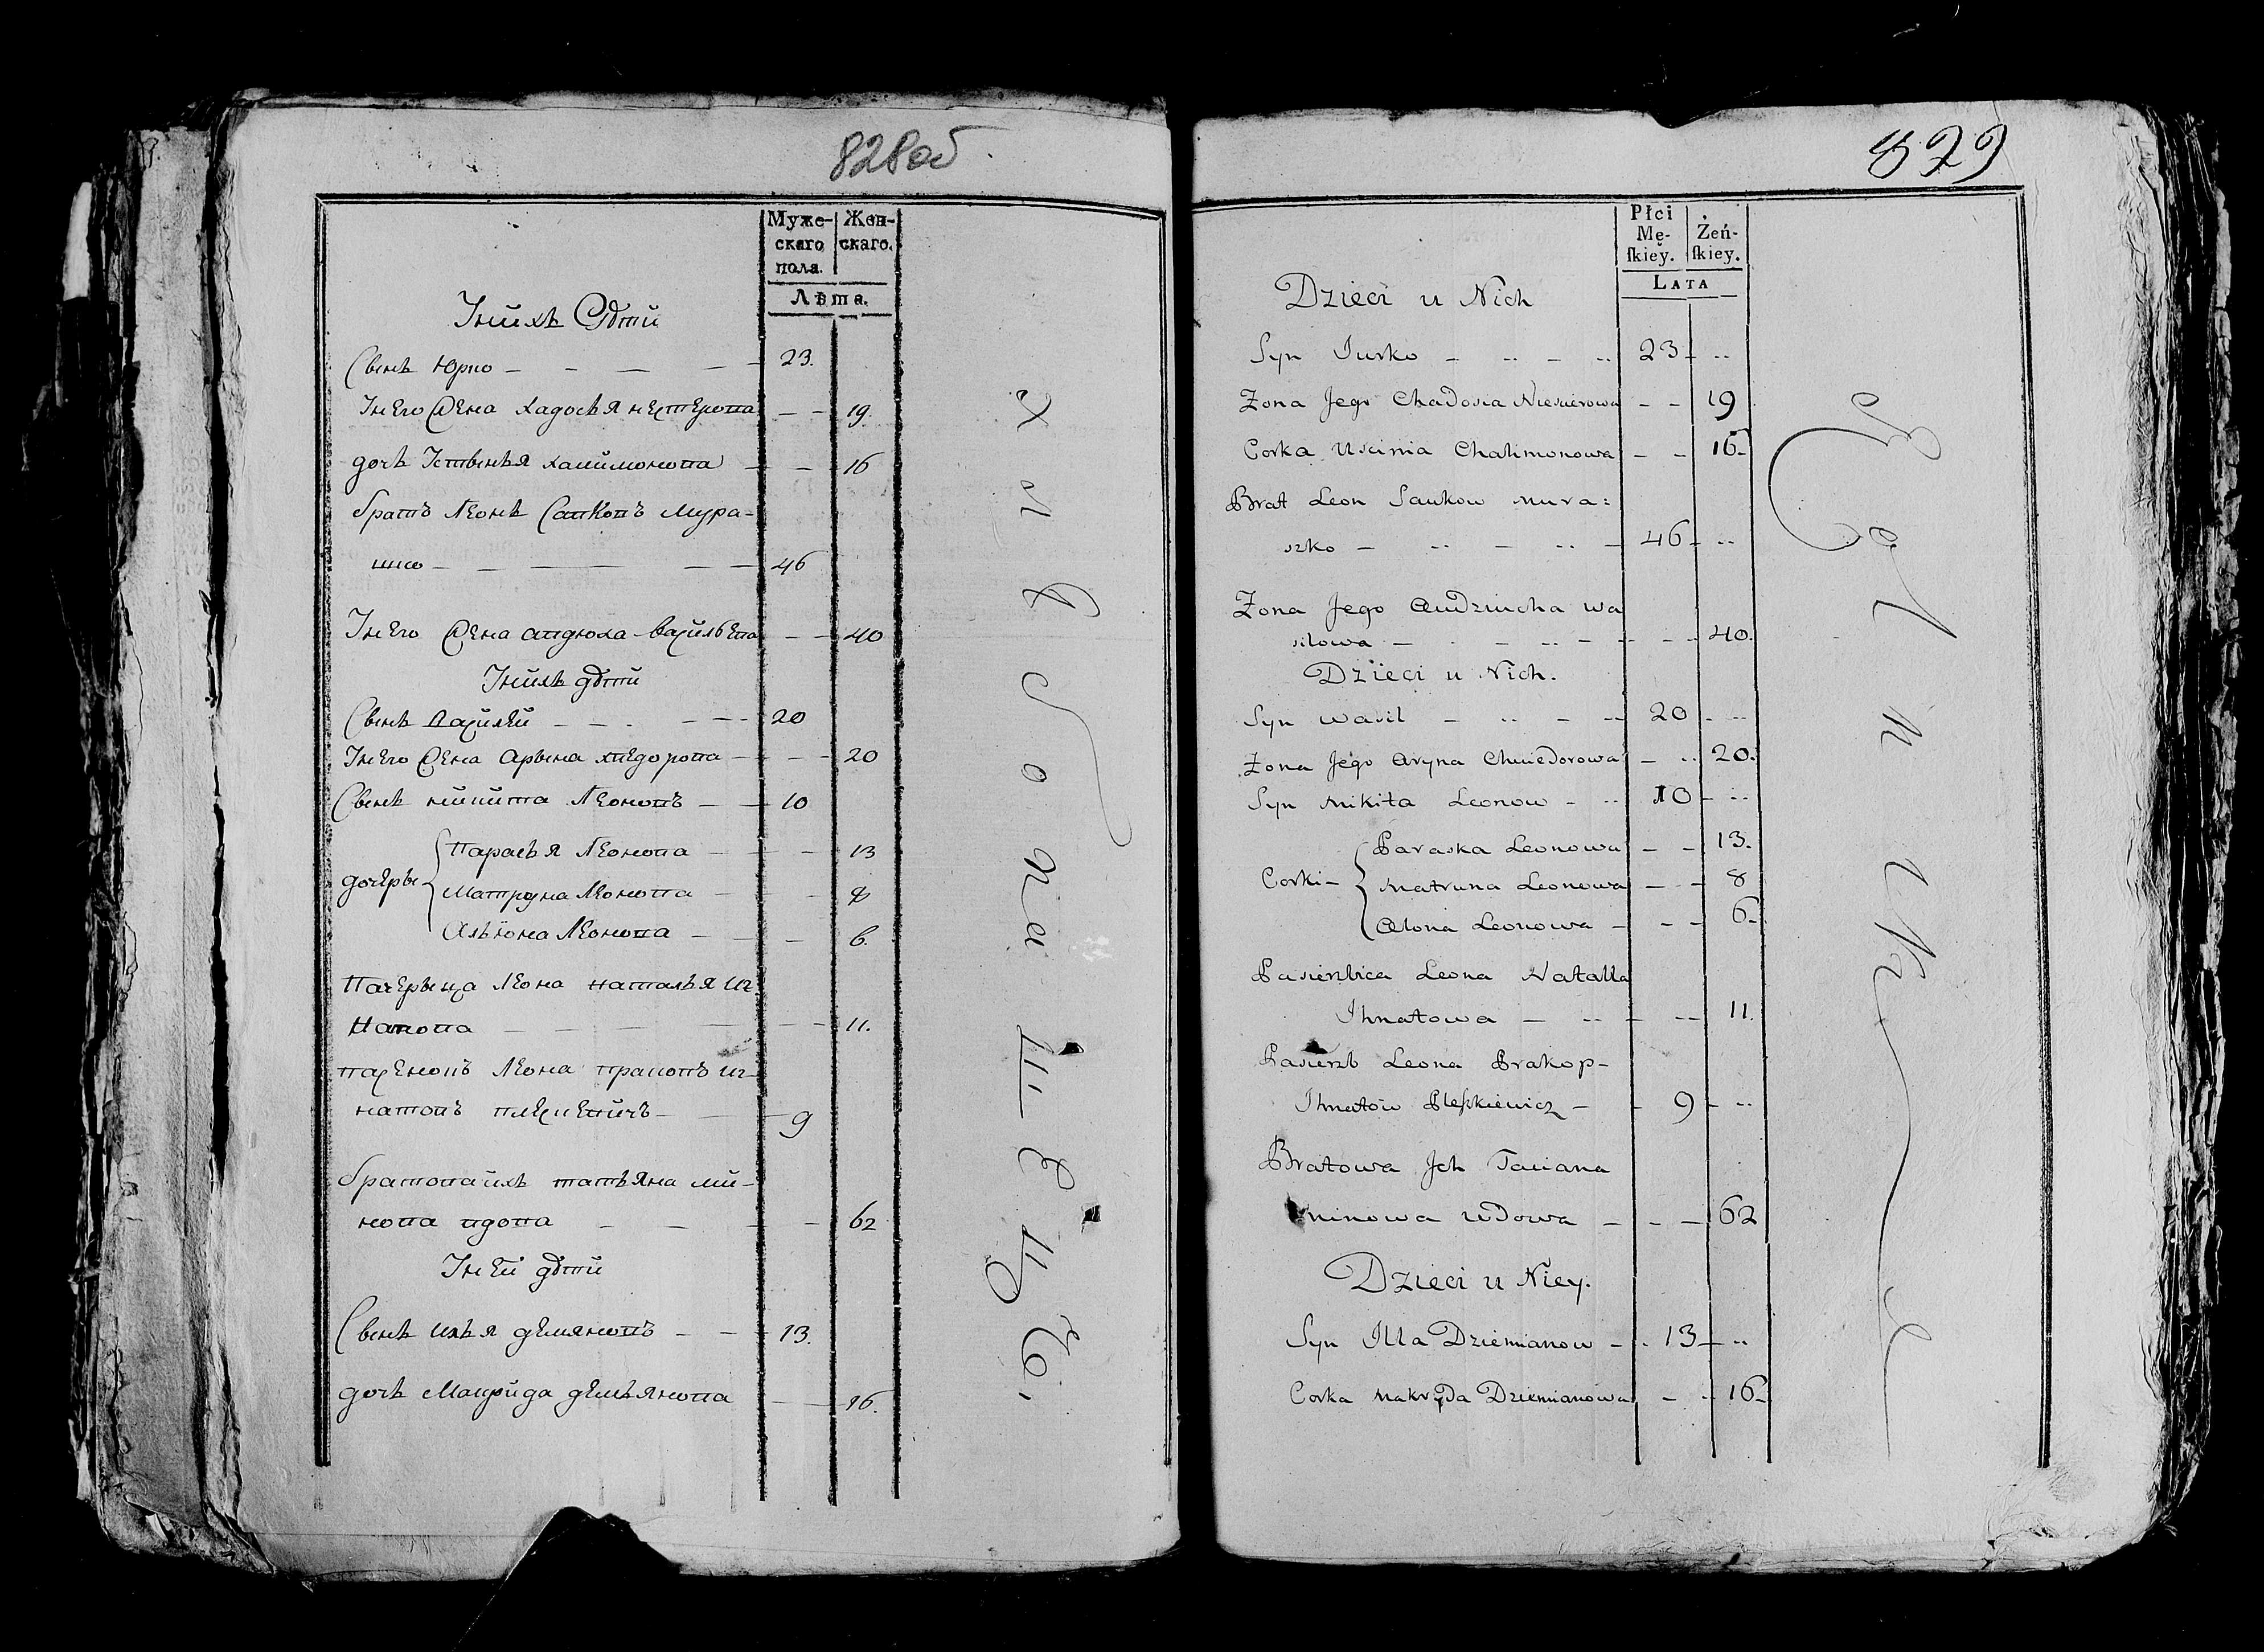 828об
Муже-
скаго
пола.
Жен-
скаго.
Лѣта.
Унихъ Дѣти
Сынъ Юрко — 23.
Унего Жена Хадосья нестерова — 19.
дочь Устинья халимонова — 16
братъ Леонъ Савковъ Мура-
шко — 46
Унего Жена авдюха васильева — 40
Унихъ дѣти
Сынъ Василей — 20
Унего Жена Арына хведорова — 20
Сынъ никита Леоновъ — 10
дочеры
Парасья Леонова — 13
Матруна Леонова — 8
Альiона Леонова — 6.
Пачерыца Леона наталья иг-
натова — 11.
пасенокъ Леона пракопъ иг-
натовъ плескевичъ — 9
братова ихъ татьяна ми-
нова вдова — 62
Уней дѣти
Сынъ илья демяновъ — 13.
дочь Макрида демьянова — 16.
Хлѣбопашецъ.
829
Płci
Mę-
ſkiey.
Żeń-
ſkiey.
LATA
Dzieci u Nich
Syn Jurko — 23 —
Żona Jego Chadosia Niescierowa — 19
Corka Uscinia Chalimonowa — 16 —
Brat Leon Saukow Mura:
szko — 46 —
Żona Jego Audziucha Wa
silowa — 40.
Dzieci u Nich.
Syn Wasil — 20
Żona Jego Aryna Chwiedorowa — 20.
Syn Mikita Leonow — 10
Corki —
Paraska Leonowa — 13.
Matruna Leonowa — 8
Alona Leonowa — 6 —
Pasierbica Leona Natalla
Ihnatowa — 11.
Pasierzb Leona Prakop —
Ihnatow Pleskiewicz — 9
Bratowa Jch Taciana
Minowa Wdowa — 62
Dzieci u Niey.
Syn Illa Dziemianow — 13
Corka Makryda Dziemianowa — 16 —
Rolnik